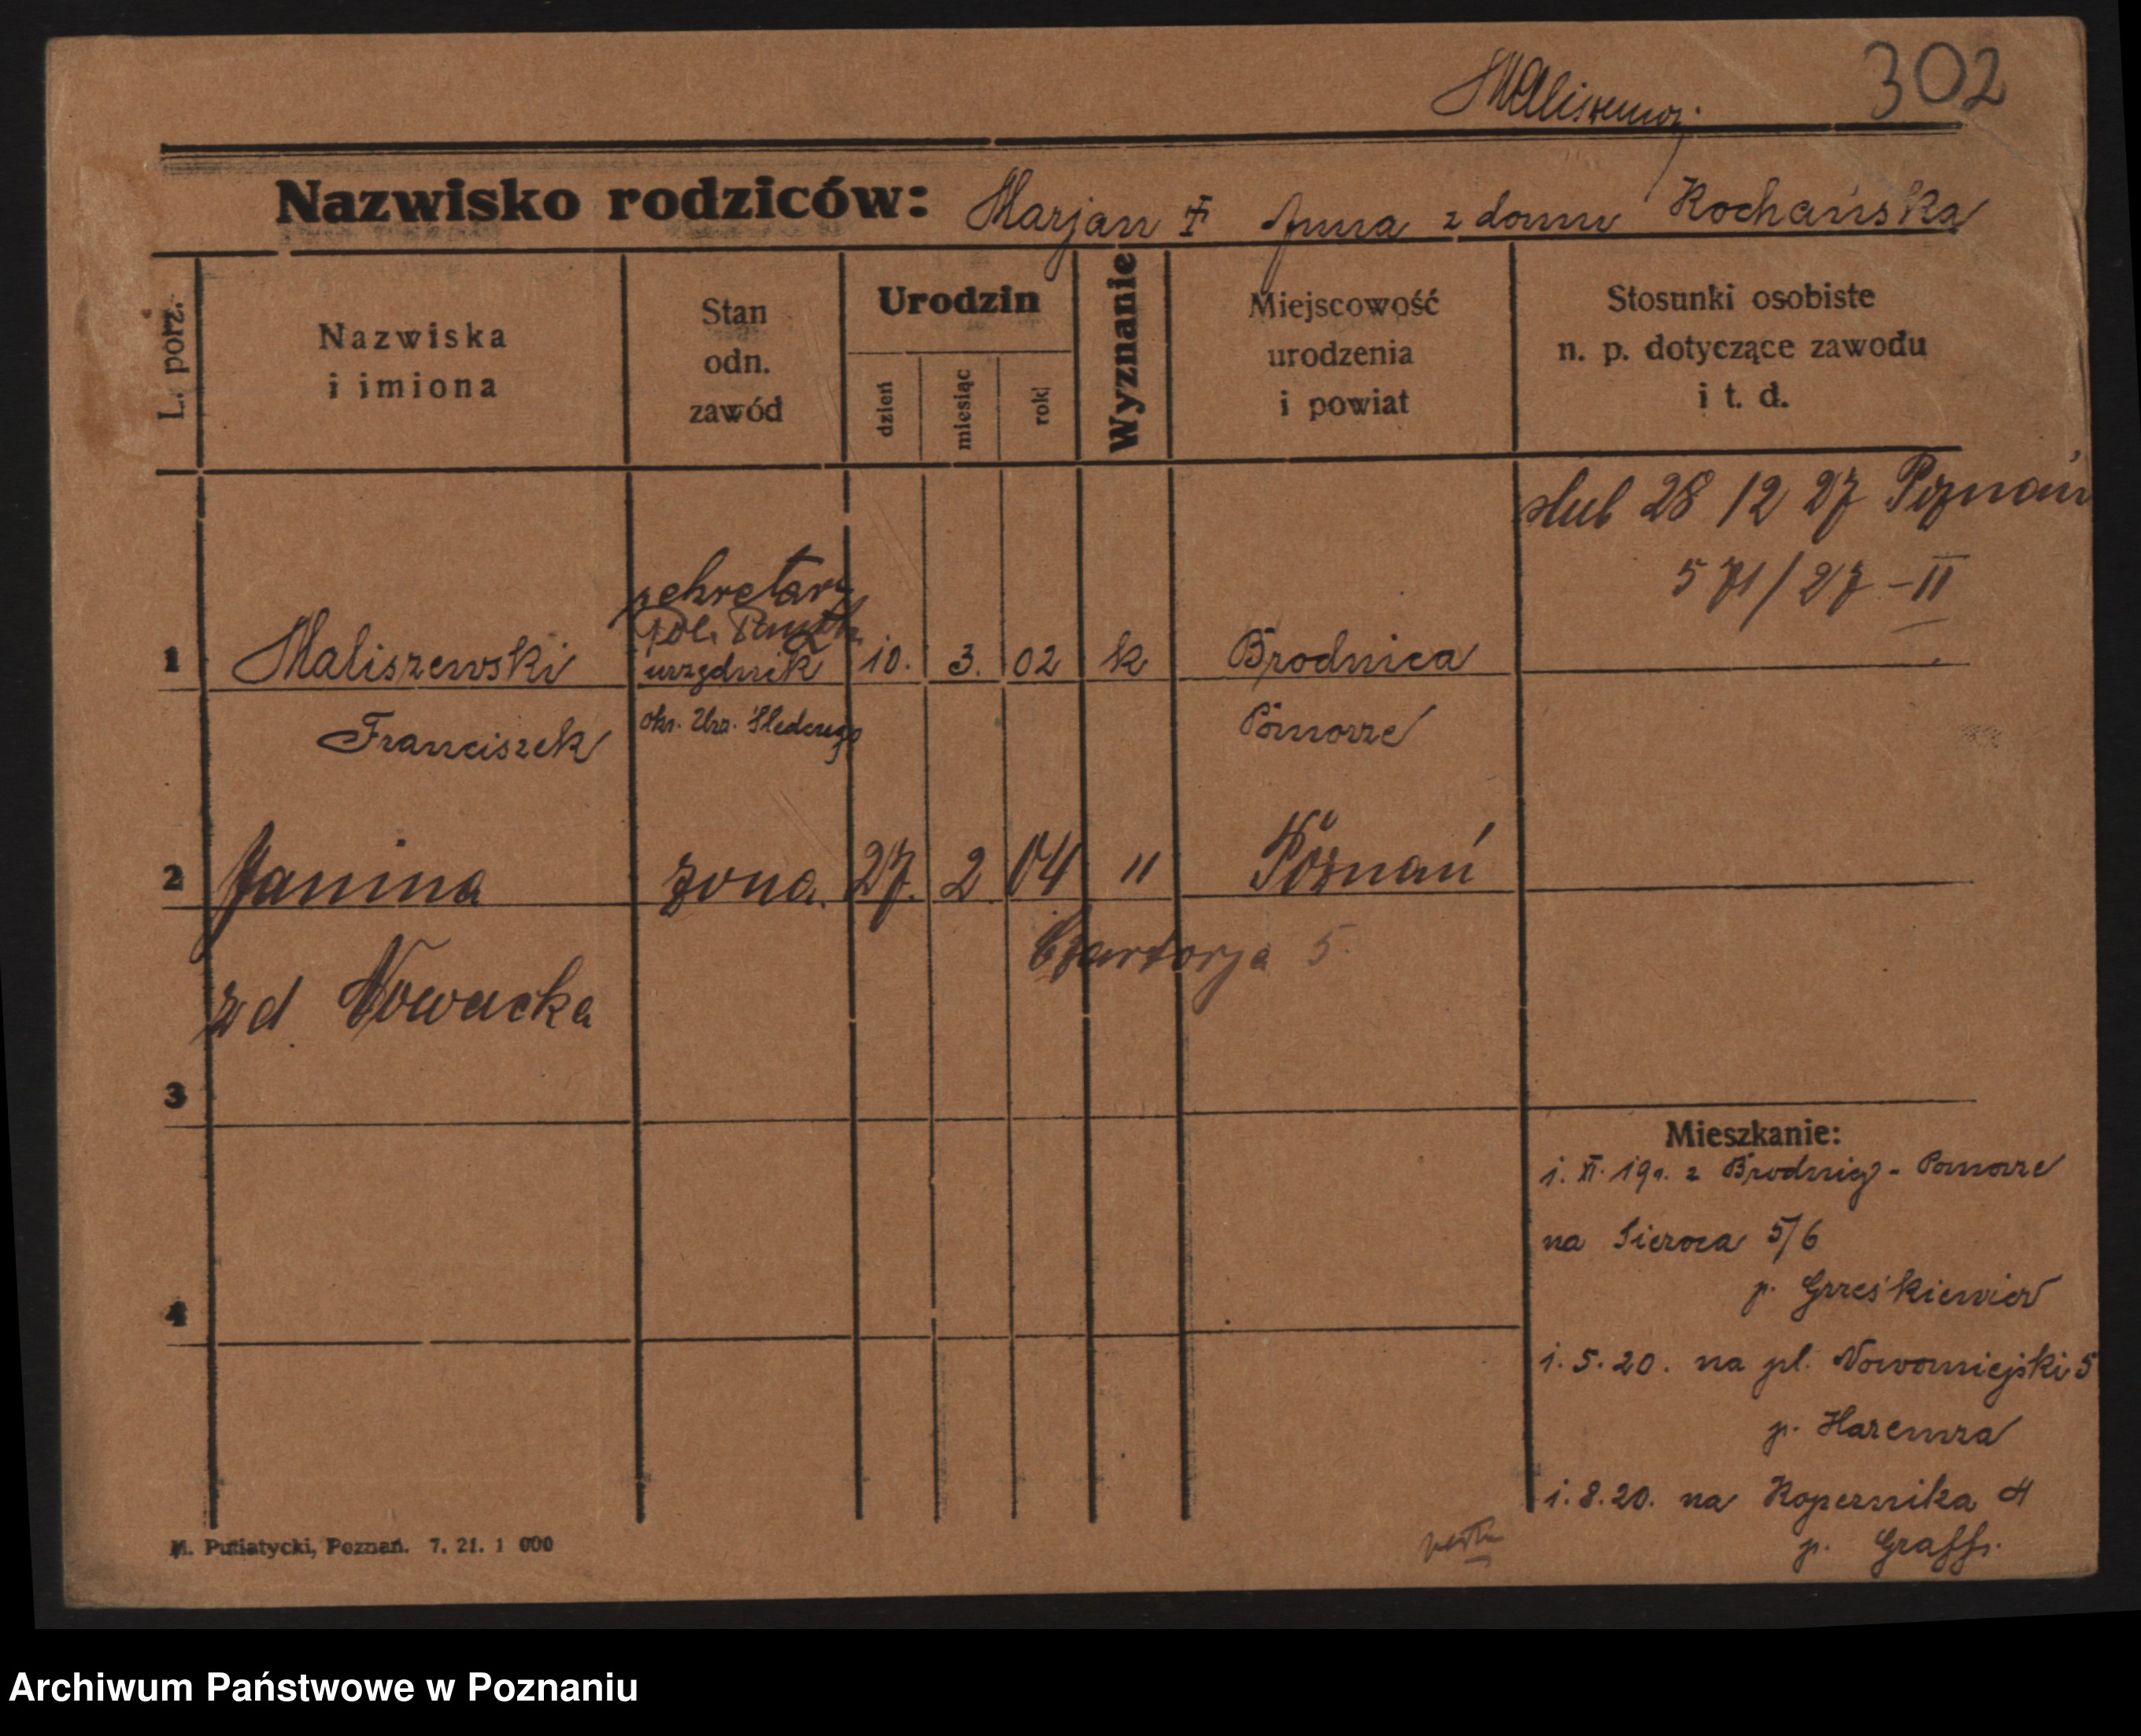 302
Maliszewski
Nazwisko rodziców: Marjan † Anna z domu Kochańska
L. porz.
Nazwiska
i imiona
Stan
odn.
zawód
Urodzin
dzień
miesiąc
rok
Wyznanie
Miejscowość
urodzenia
i powiat
Stosunki osobiste
n. p. dotyczące zawodu
i t. d.
slub 28 12 27 Poznań
571/27-II
sekretarz
Pol.
1 Maliszewski urzędnik 10. 3. 02 k Brodnica
Franciszek okr. Urz. Śledczego Pomorze
2 Janina zona. 27. 2 04 " Poznań
Czartorja 5.
zd Nowacka
3
Mieszkanie:
1. XI. 19r. z Brodnicy - Pomorze
na Sieroca 5/6
p. Grześkiewicz
4
1. 5. 20. na pl. Nowomiejski 5
p. Haremza
1. 8. 20. na Kopernika 4
p. Graff.
M. Putiatycki, Poznań. 7. 21. 1 000
Archiwum Państwowe w Poznaniu